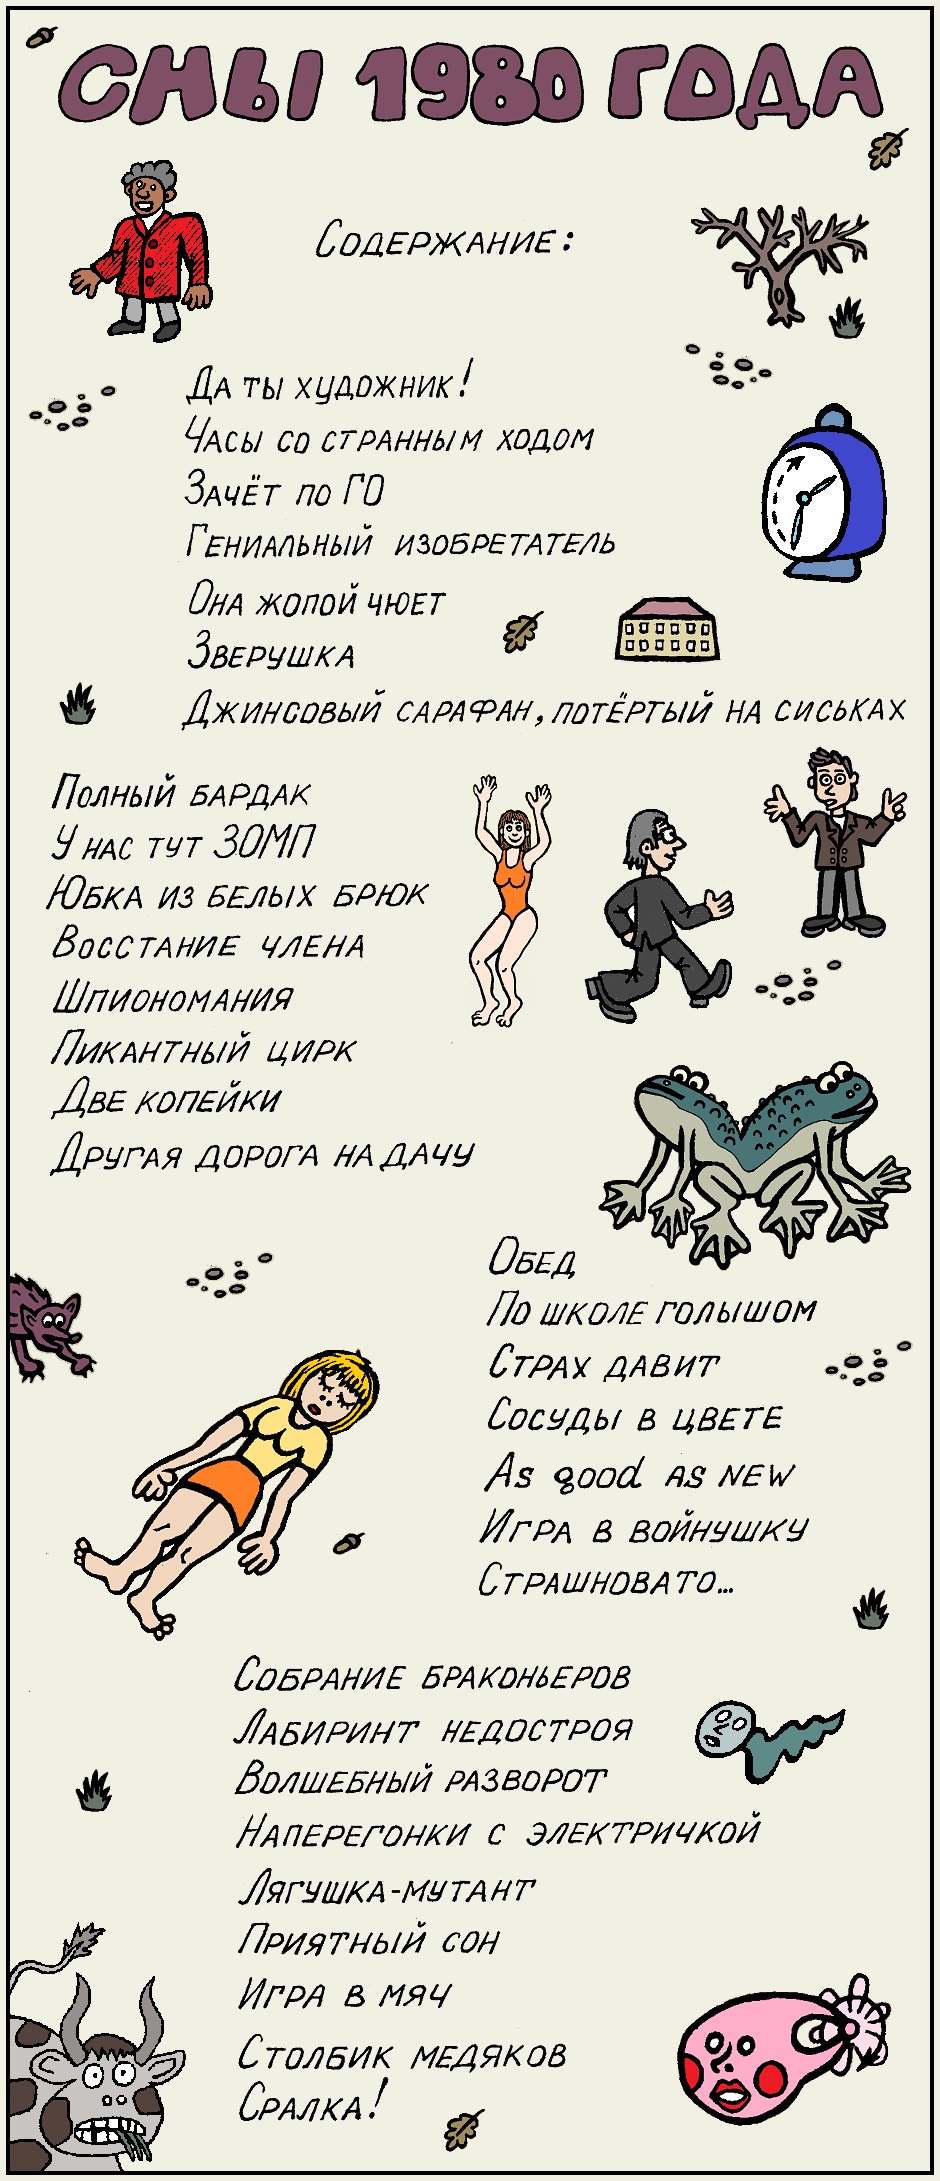 СНЫ 1980 ГОДА
СОДЕРЖАНИЕ:
ДА ТЫ ХУДОЖНИК!
ЧАСЫ СО СТРАННЫМ ХОДОМ
ЗАЧЁТ ПО ГО
ГЕНИАЛЬНЫЙ ИЗОБРЕТАТЕЛЬ
ОНА ЖОПОЙ ЧЮЕТ
ЗВЕРУШКА
ДЖИНСОВЫЙ САРАФАН, ПОТЁРТЫЙ НА СИСЬКАХ
ПОЛНЫЙ БАРДАК
У НАС ТУТ ЗОМП
ЮБКА ИЗ БЕЛЫХ БРЮК
ВОССТАНИЕ ЧЛЕНА
ШПИОНОМАНИЯ
ПИКАНТНЫЙ ЦИРК
ДВЕ КОПЕЙКИ
ДРУГАЯ ДОРОГА НА ДАЧУ
ОБЕД
ПО ШКОЛЕ ГОЛЫШОМ
СТРАХ ДАВИТ
СОСУДЫ В ЦВЕТЕ
AS good AS NEW
ИГРА В ВОЙНУШКУ
СТРАШНОВАТО...
СОБРАНИЕ БРАКОНЬЕРОВ
ЛАБИРИНТ НЕДОСТРОЯ
ВОЛШЕБНЫЙ РАЗВОРОТ
НАПЕРЕГОНКИ С ЭЛЕКТРИЧКОЙ
ЛЯГУШКА-МУТАНТ
ПРИЯТНЫЙ СОН
ИГРА В МЯЧ
СТОЛБИК МЕДЯКОВ
СРАЛКА!